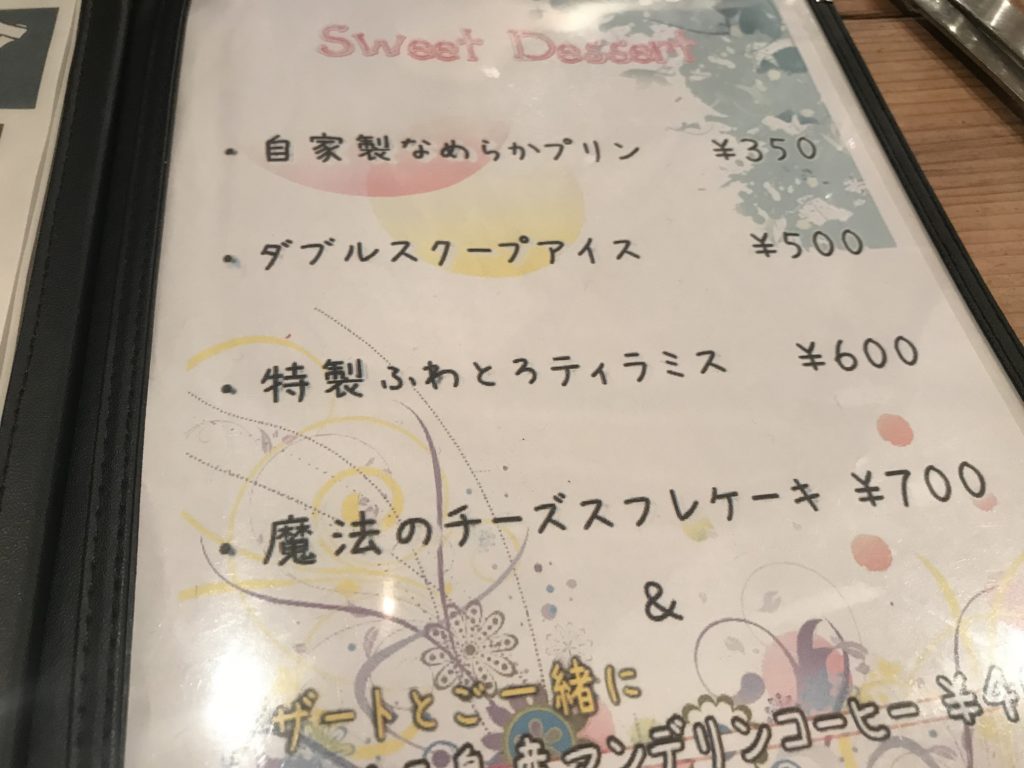 Sweet Dessert
・自家製なめらかプリン ¥350
・ダブルスクープアイス ¥500
・特製ふわとろティラミス ¥600
・魔法のチーズスフレケーキ ¥700
&
ザートとご一緒に
マンデリンコーヒー ¥4